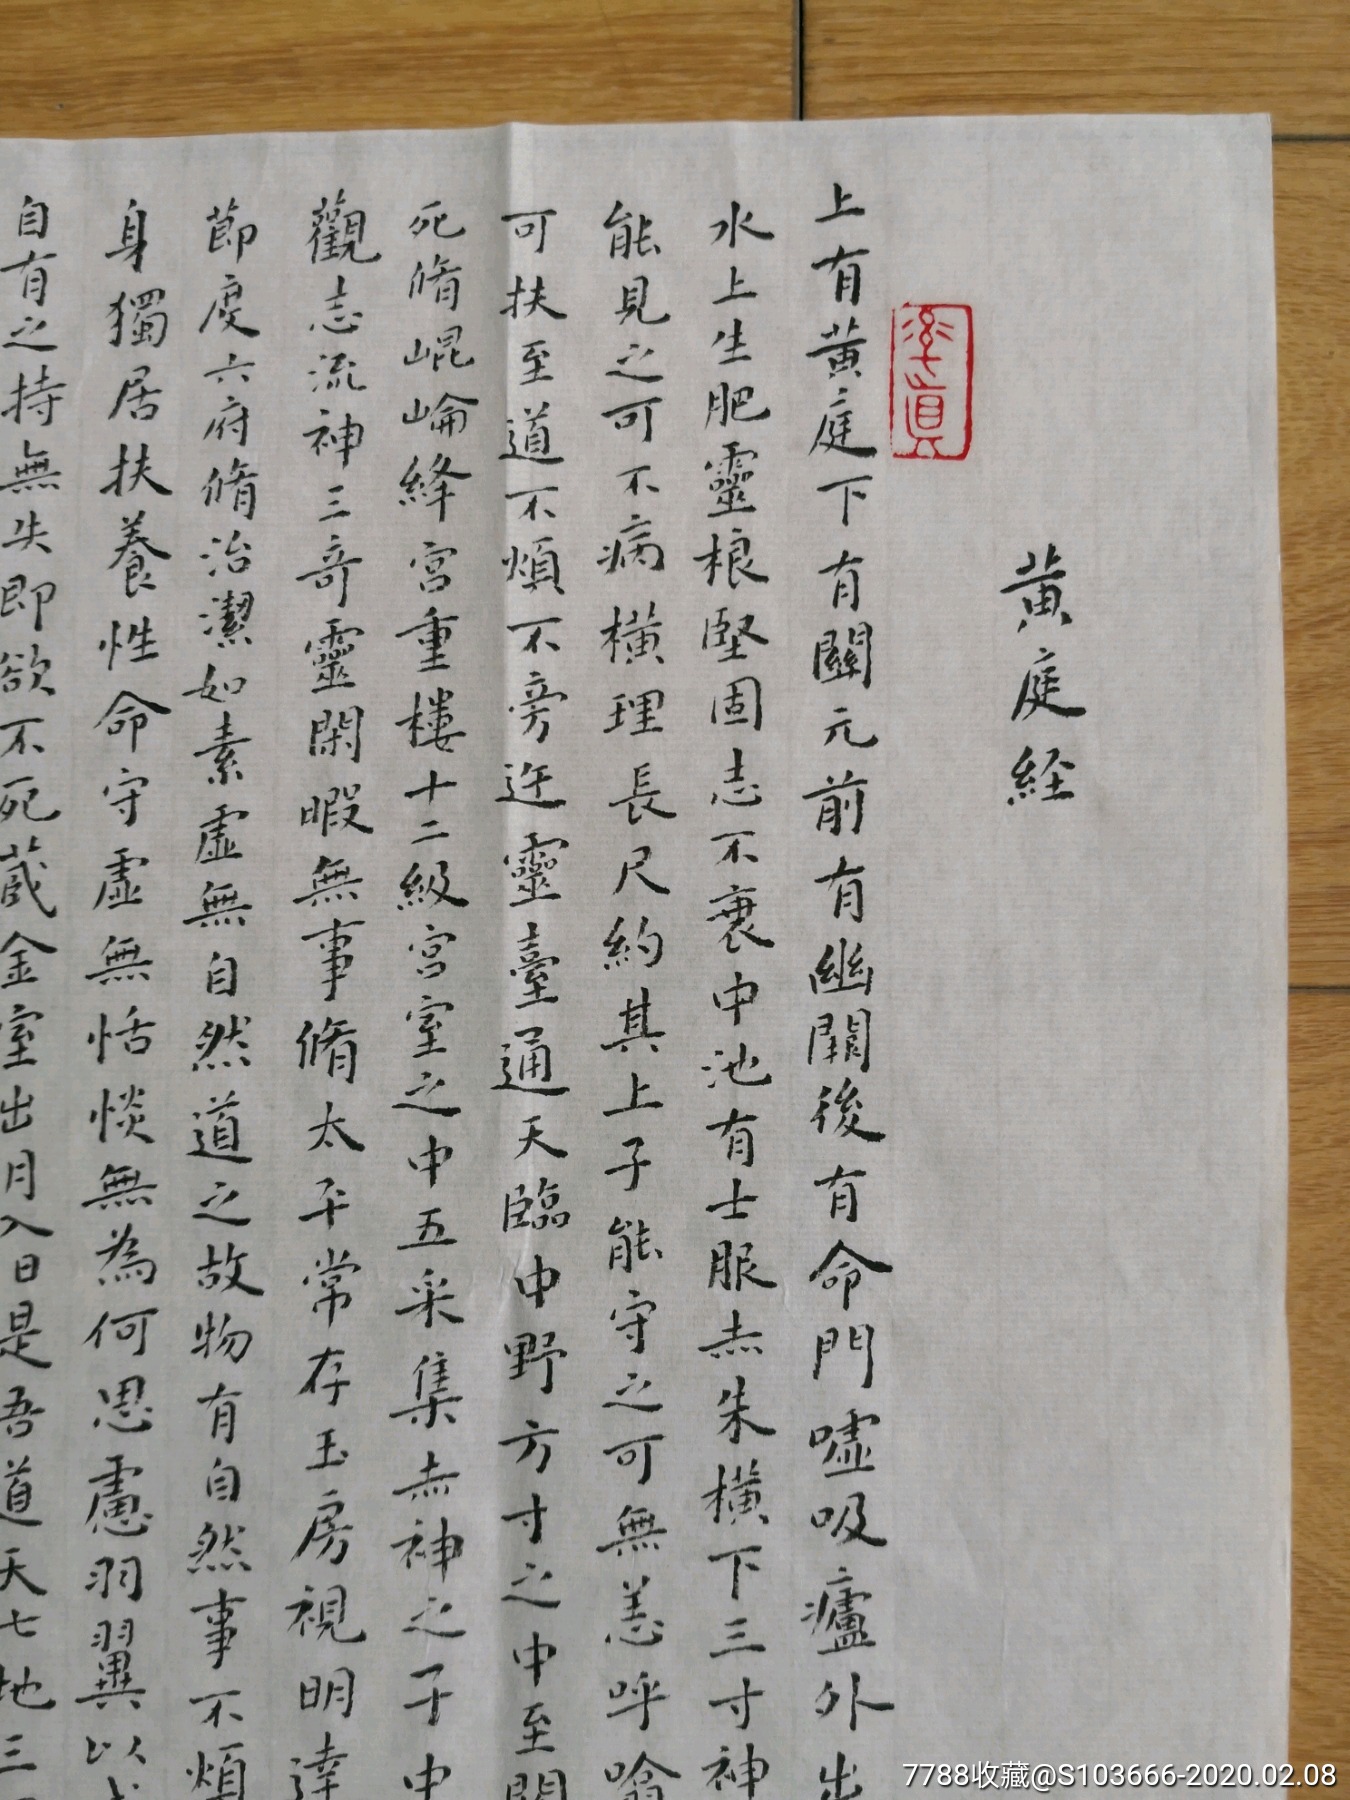 黄庭経
率真
上有黄庭下有關元前有幽關後有命門噓吸廬外出
水上生肥靈根堅固志不衰中池有士服赤朱橫下三寸神
能見之可不病橫理長尺約其上子能守之可無恙呼噏
可扶至道不煩不旁迕靈臺通天臨中野方寸之中至關
死脩崐崘絳宮重樓十二級宮室之中五采集赤神之子中
觀志流神三奇靈閑暇無事脩太平常存玉房視明達
節度六府脩治潔如素虛無自然道之故物有自然事不煩
身獨居扶養性命守虛無恬惔無為何思慮羽翼以
自有之持無失即欲不死藏金室出月入日是吾道天七地三
7788收藏@S103666-2020.02.08